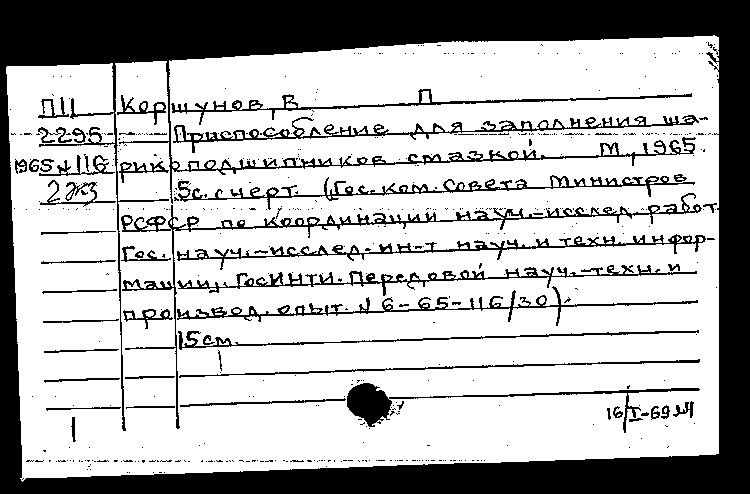 П11 Коршунов, В. П
2295 Приспособление для заполнения ша-
1965 № 116 рикоподшипников смазкой. М., 1965.
2 экз 5с. с черт. (Гос. ком. Совета Министров
РСФСР по координации науч.-исслед. работ.
Гос. науч.-исслед. ин-т науч. и техн. инфор-
мации. ГосИНТИ. Передовой науч.-техн. и
производ. опыт. № 6-65-116/30).
15 см.
16/I-69